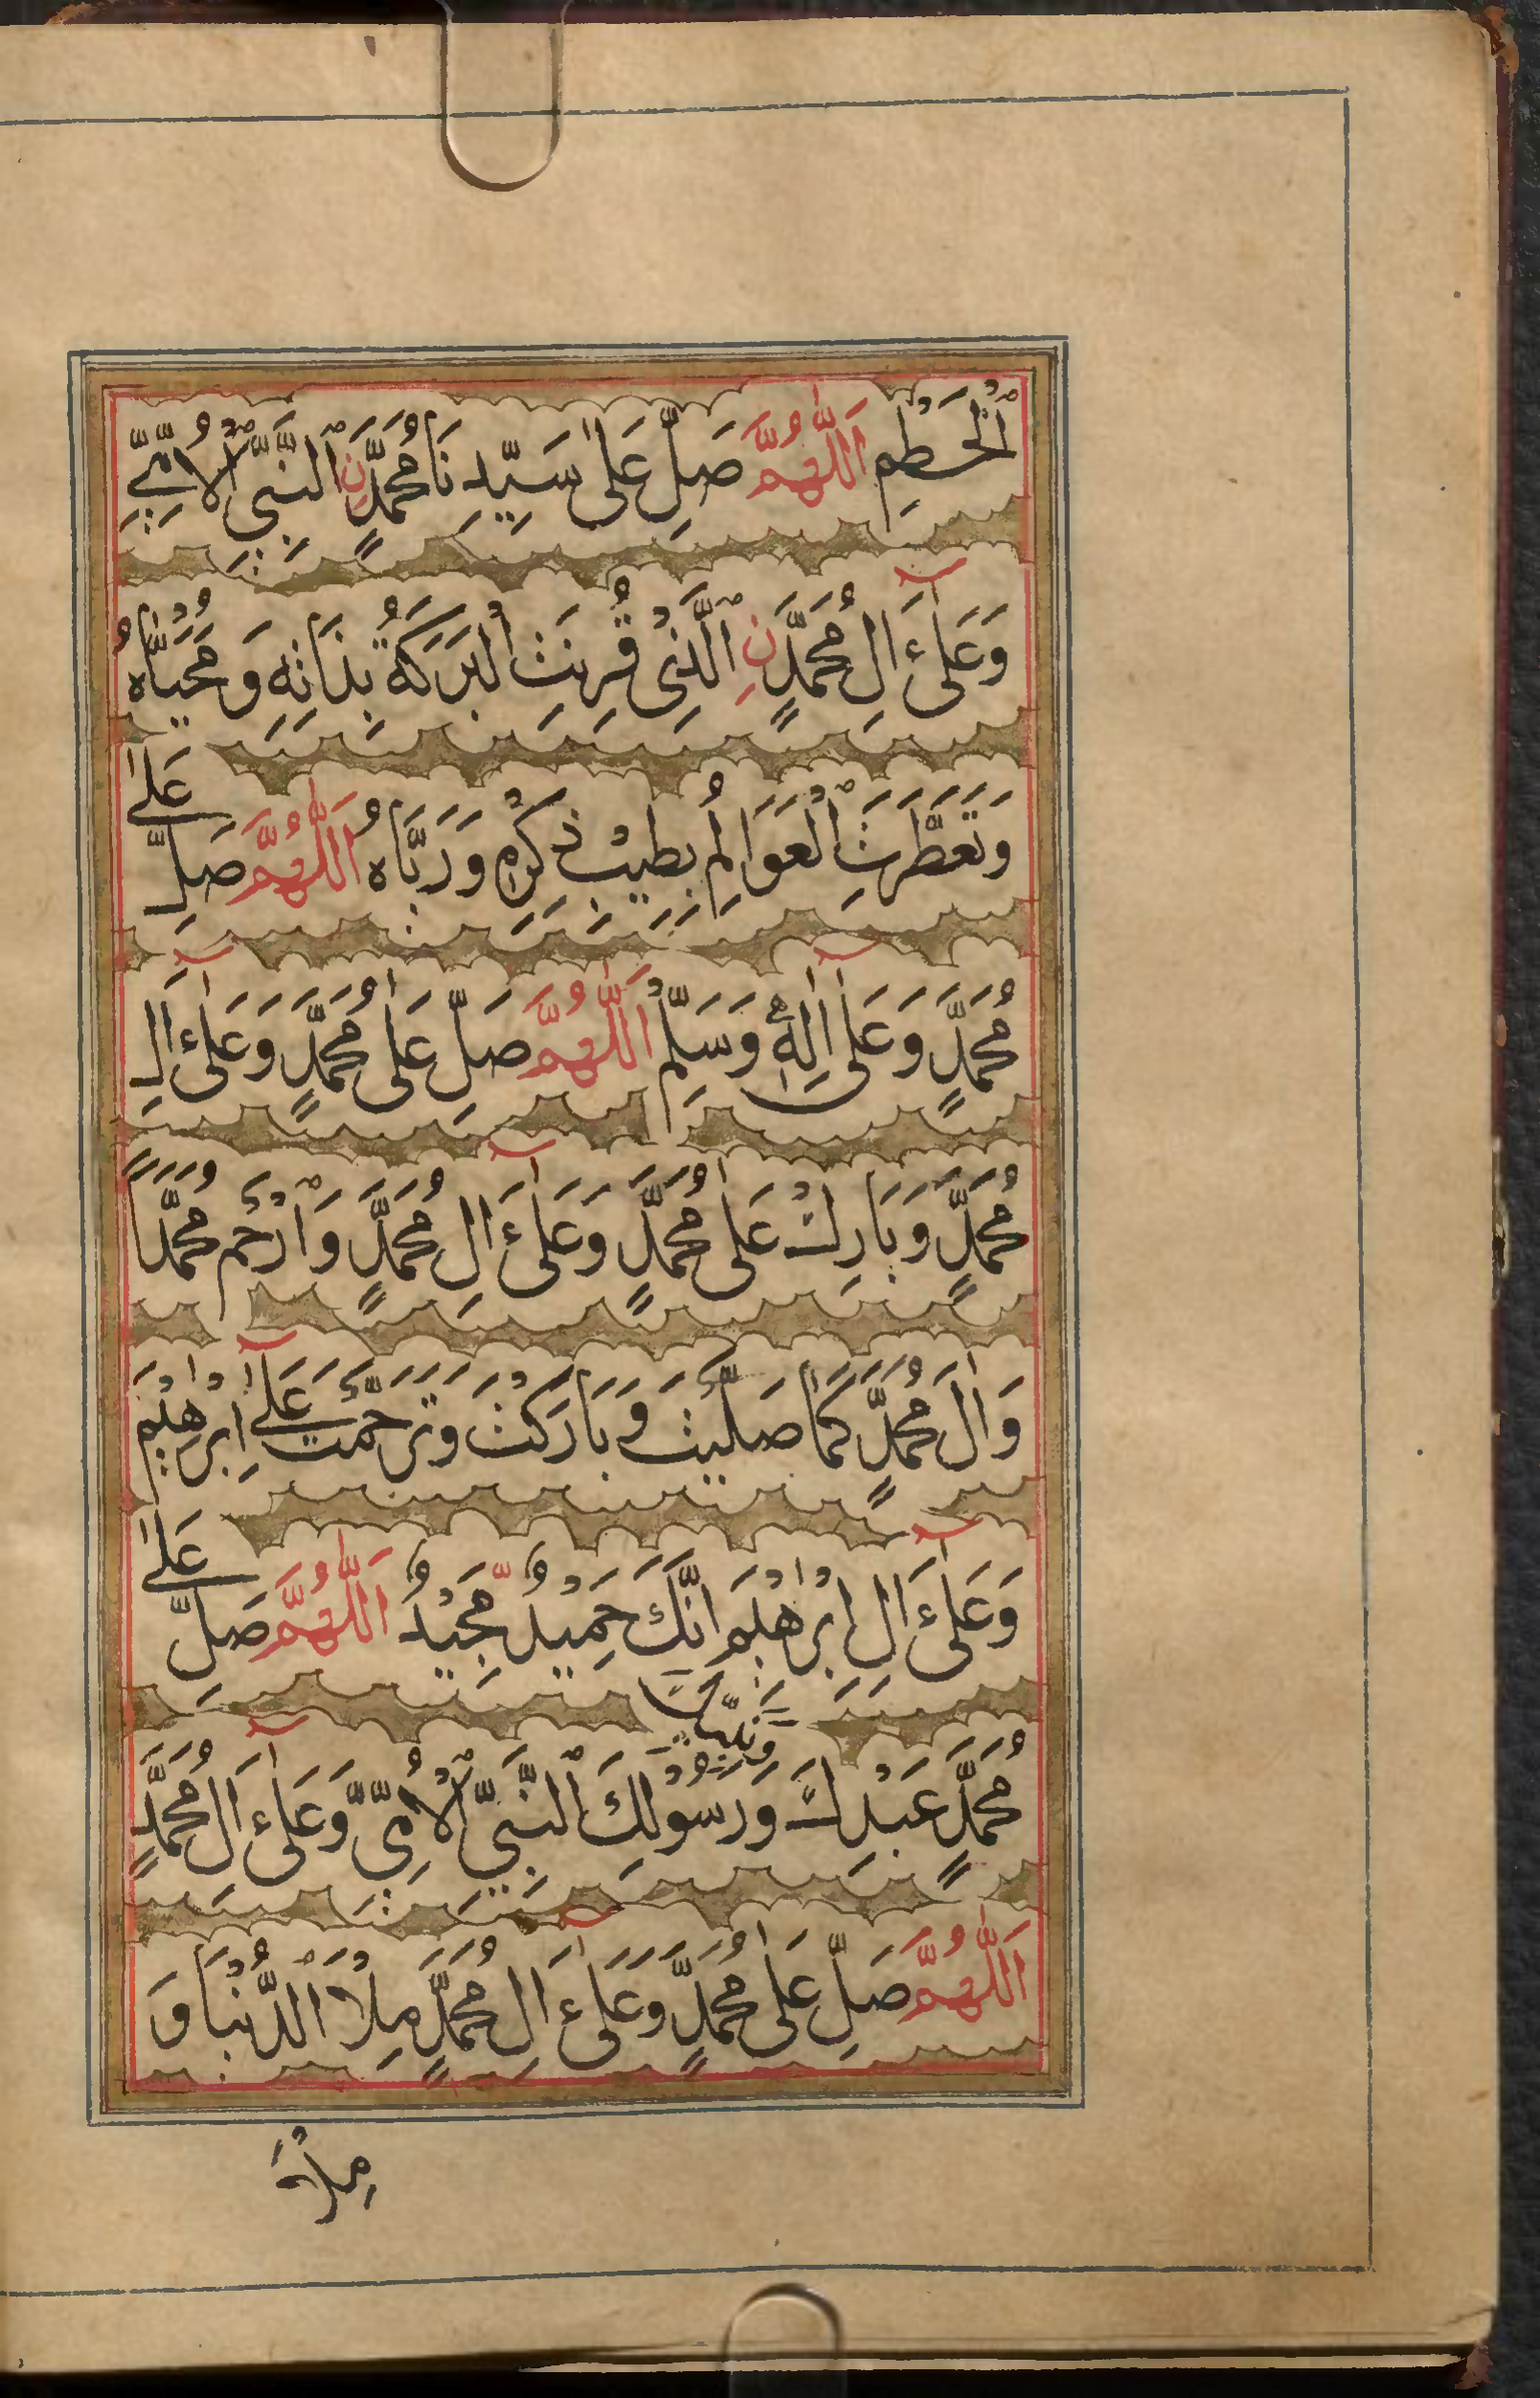 ٱلْخَطْمِ اَللّٰهُمَّ صَلِّ عَلٰى سَيِّدِنَا مُحَمَّدٍنِ ٱلنَّبِيِّ ٱلْاُمِّيِّ
وَعَلٰٓى ءَالِ مُحَمَّدٍنِ ٱلَّذِىْ قُرِنَتِ الْبَرَكَةُ بِذَاتِهٖ وَمُحَيَّاهُ
وَتَعَطَّرَتِ ٱلْعَوَالِمُ بِطِيْبِ ذِكْرِهٖ وَرَيَّاهُ اَللّٰهُمَّ صَلِّ عَلٰى
مُحَمَّدٍ وَعَلٰٓى اٰلِهٖ وَسَلِّمْ اَللّٰهُمَّ صَلِّ عَلٰى مُحَمَّدٍ وَعَلٰٓى ءَالِ
مُحَمَّدٍ وَبَارِكْ عَلٰى مُحَمَّدٍ وَعَلٰٓى ءَالِ مُحَمَّدٍ وَٱرْحَمْ مُحَمَّدًا
وَاٰلَ مُحَمَّدٍ كَمَا صَلَّيْتَ وَبَارَكْتَ وَتَرَحَّمْتَ عَلٰٓى اِبْرٰهِيْمَ
وَعَلٰٓى ءَالِ اِبْرٰهِيْمَ اِنَّكَ حَمِيْدٌ مَّجِيْدٌ اَللّٰهُمَّ صَلِّ عَلٰى
مُحَمَّدٍ عَبْدِكَ وَنَبِيِّكَ وَرَسُوْلِكَ ٱلنَّبِيِّ ٱلْاُمِّيِّ وَّعَلٰٓى ءَالِ مُحَمَّدٍ
اَللّٰهُمَّ صَلِّ عَلٰى مُحَمَّدٍ وَعَلٰٓى ءَالِ مُحَمَّدٍ مِلْاَ ٱلدُّنْيَا وَ
مِلْأَ